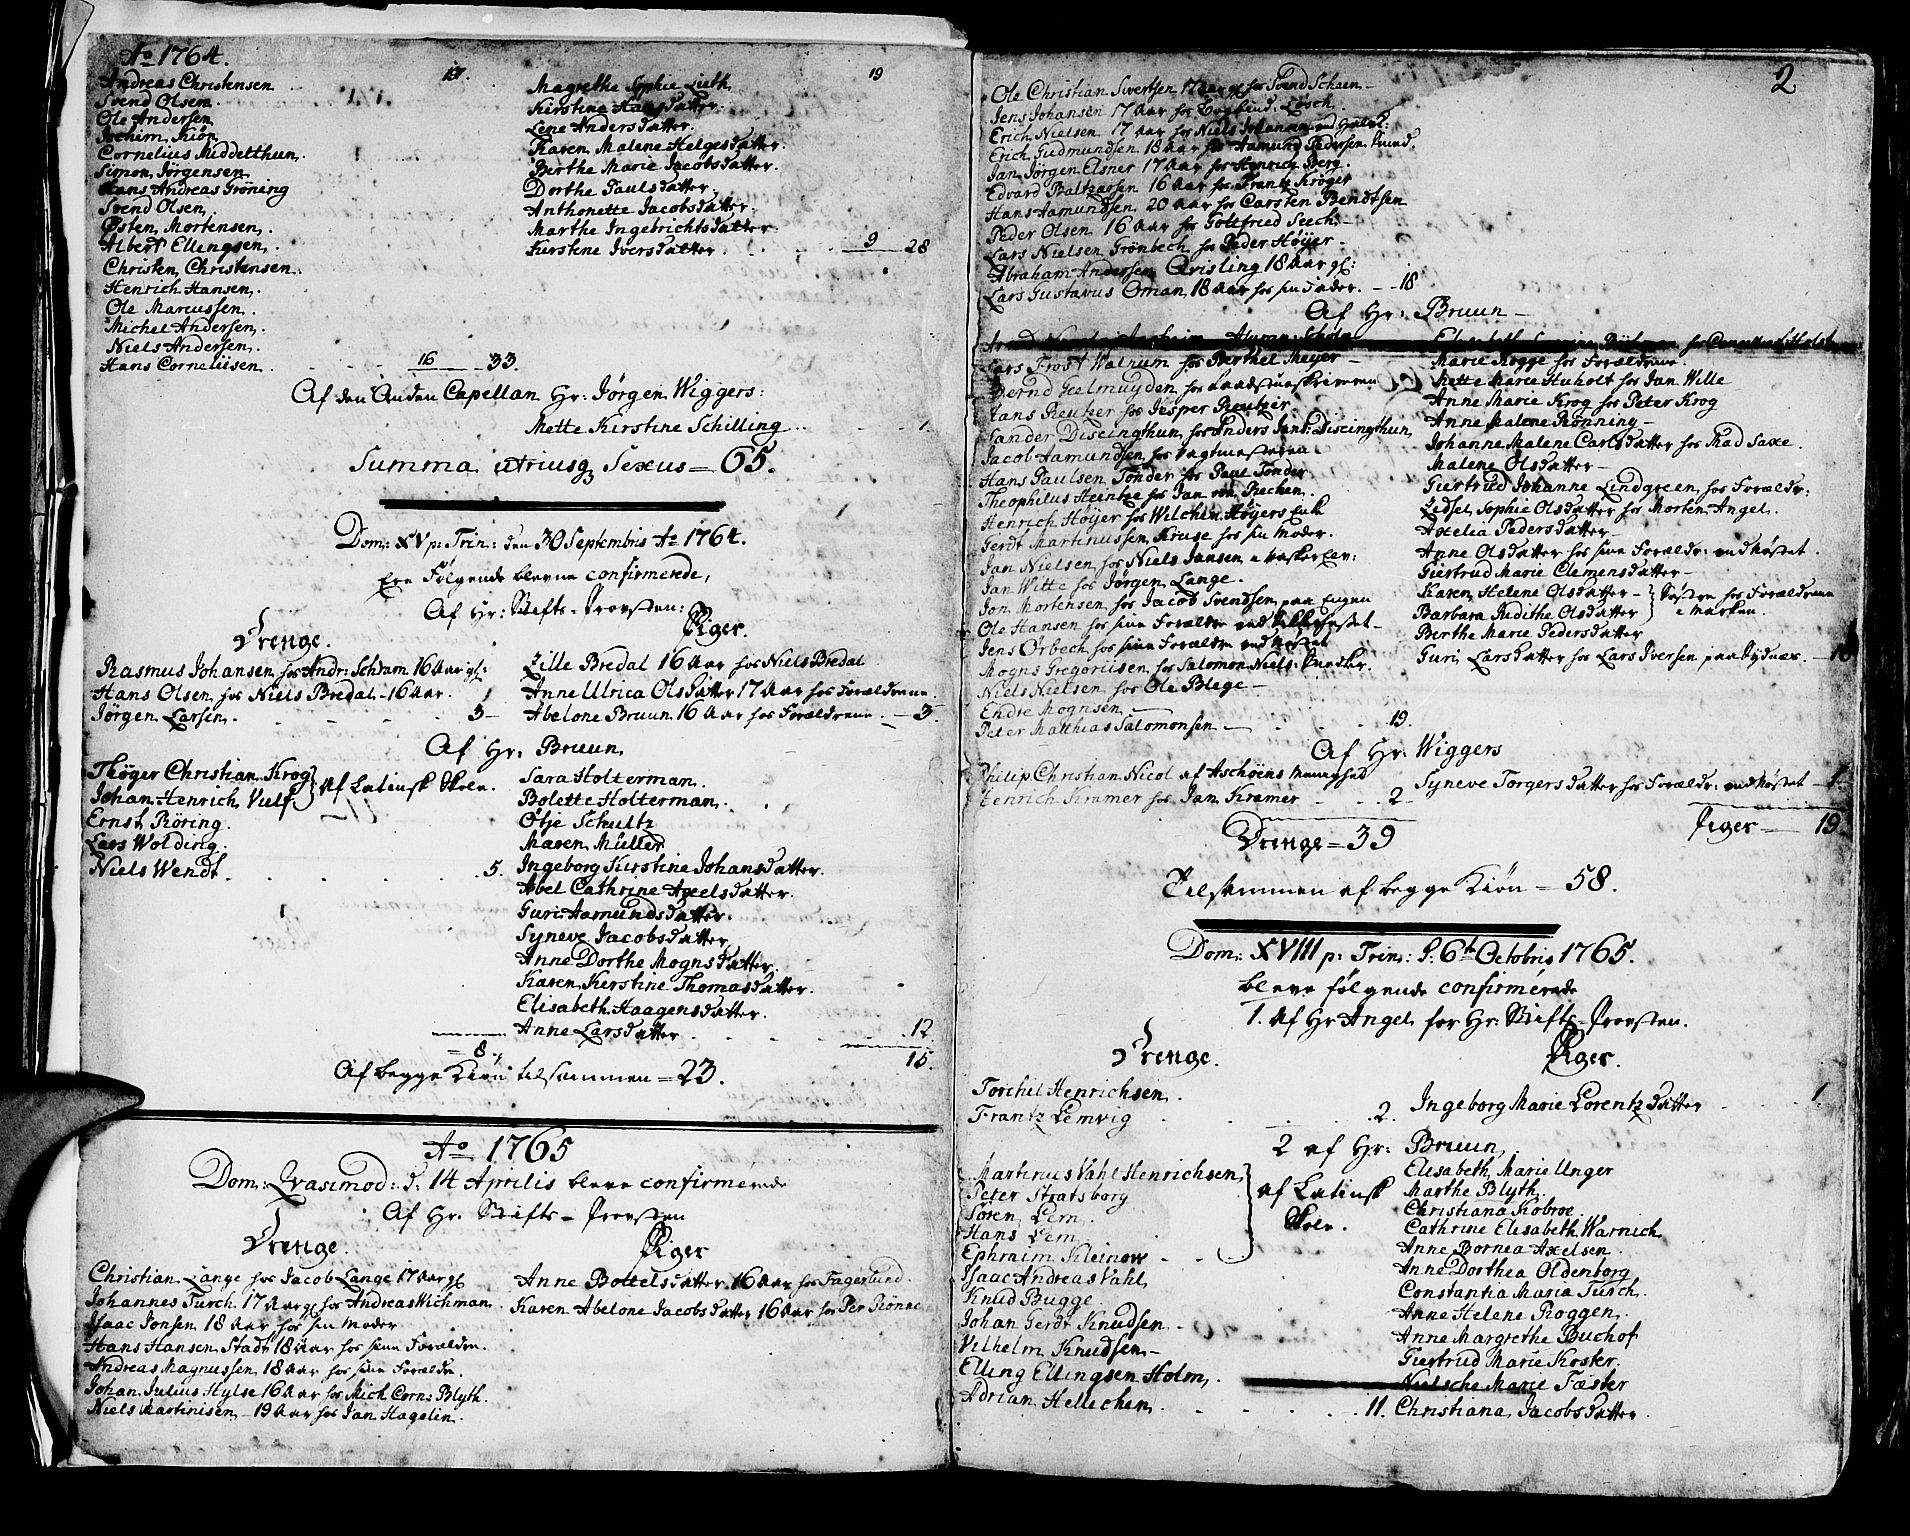 Aº 1764.
17.
Andreas Christensen
Svend Olsen.
Ole Andersen
Jochim Kiön
Cornelius Middelthun.
Simon Jörgensen
Hans Andreas Gröning
Svend Olsen.
Östen Mortensen.
Albert Ellingsen.
Christen Christensen.
Henrich Hansen.
Ole Marcussen.
Michel Andersen.
Niels Andersen.
Hans Corneliisen. 16 33.
19
Magrethe Sophie Lieth
Kirstine Hansdatter.
Lene Andersdatter.
Karen Malene Helgesdatter.
Berthe Marie Jacobsdatter.
Dorthe Paulsdatter.
Anthonette Jacobsdatter.
Marthe Ingebrichtsdatter
Kirstene Iversdatter. 9 28
Af den Anden Capellan Hr: Jörgen Wiggers:
Mette Kirstine Schilling 1
Summa utriusq Sexus = 65.
Dom: XV p: Trin: den 30 Septembris Aº 1764.
ere Følgende blevne confirmerede,
Af Hr: Stifts-Provsten:
Drenge.
Rasmus Johansen hos Andr: Schram 16 Aar gl:
Hans Olsen hos Niels Bredal 16 Aar.
Jörgen Larsen. 3
Piger.
Zille Bredal 16 Aar hos Niels Bredal
Anne Ulrica Olsdatter 17 Aar hos Forældrene.
Abelone Bruun 16 Aar hos Forældrene. 3.
Af Hr: Bruun
Thöger Christian Krog
Johan Henrich Vulf } Af Latinsk Skole.
Ernst Röring.
Lars Wolding.
Niels Wendt. 5.
Sara Holterman.
Bolette Holterman.
Otje Schultz
Maren Müller
Ingeborg Kirstine Johansdatter.
Abel Cathrine Axelsdatter.
Guri Aamundsdatter.
Syneve Jacobsdatter
Anne Dorthe Mognsdatter
Karen Kirstine Thomasdatter.
Elisabeth Haagensdatter.
Anne Larsdatter. 12
= 8, 15.
Af begge Kiön tilsammen = 23.
Aº 1765
Dom: Qvasimod: d: 14 Aprilis bleve confirmerede
Af Hr. Stifts-Provsten
Drenge.
Christian Lange hos Jacob Lange 17 Aar gl
Johannes Turch. 17 Aar gl hos Andreas Wichman
Isaac Jonsen 18 Aar hos sin Moder
Hans Hansen Stadt 18 Aar hos sine Forældre.
Andreas Magnussen 18 Aar hos sine Forældre.
Johan Julius Hylse 16 Aar hos Mich Corn: Blyth.
Niels Martinisen 19 Aar hos Jan Hagelin.
Piger
Anne Bottelsdatter 16 Aar hos Fagerlund.
Karen Abelone Jacobsdatter 16 Aar hos Per Rönne
2
Ole Christian Sivertsen 17 Aar gl hos Svend Scheen
Jens Johansen 17 Aar hos Lösch.
Erich Nielsen 17 Aar hos Niels Johannesen
Erich Gudmundsen 18 Aar hos Aamund Pedersen
Jan Jörgen Elsner 17 Aar hos Henrich Berg.
Edvard Baltzarsen 16 Aar hos Frantz Kröger
Hans Aamundsen 20 Aar hos Carsten Bendtsen
Peder Olsen 16 Aar hos Gottfried Seech
Lars Nielsen Grönbech hos Peder Höyer
Abraham Andersen Qvisling 18 Aar gl:
Lars Gustavus Oman 18 Aar hos sin Fader. 18
Af Hr: Bruun
Lars Frost Walnum hos Berthel Meyer
Bernd Geelmuyden hos Raadstueskriveren
Hans Reutzer hos Jesper Reutzer
Sander Diseingthun hos Anders Jans: Diseingthun
Jacob Aamundsen hos Vagtmesteren
Hans Paulsen Tönder hos Paul Tönder
Theophilus Heintze hos Jan von Rechen.
Henrich Höyer hos Wilchen Höyers Enke
Gerdt Martinussen Kruse hos sin Moder.
Jan Nielsen hos Niels Jansen
Jan Witte hos Jörgen Lange.
Jon Mortensen hos Jacob Svendsen paa Engen
Ole Hansen hos sine Forældre
Jens Orbech hos sine Forældre ved Nöstet
Mogns Gregoriisen hos Salomon Niels:
Niels Nielsen hos Ole Blege
Endre Mognsen
Peter Matthias Salomonsen 19.
Marie Rogge hos Forældrene
Mette Marie Huholt hos Jan Wille
Anne Marie Krog hos Peter Krog
Anne Malene Rönning
Johanne Malene Carlsdatter hos Rad Saxe.
Malene Olsdatter
Giertrud Johanne Lindgreen hos Forældr:
Zidsel Sophie Olsdatter hos Morten Angel.
Axelia Pedersdatter
Anne Olsdatter hos sine Forældr: ved Nöstet.
Giertrud Marie Clemensdatter
Karen Helene Olsdatter
Barbara Judithe Olsdatter } Söstre hos Forældrene i Marken.
Berthe Marie Pedersdatter
Guri Larsdatter hos Lars Iversen paa Sydnæs. 18
Af Hr Wiggers
Philip Christian Nicol af Aschöens Menighed
Henrich Kramer hos Jan Kramer 2
Syneve Torgersdatter hos Forældr: ved Nöstet 1.
Drenge = 39
Piger 19
Tilsammen af begge Kiön = 58.
Dom: XVIII p: Trin: d: 6te Octobris 1765.
bleve følgende confirmerede
1. af Hr Angel for Hr: Stifts-Provsten.
Drenge.
Torchil Henrichsen.
Frantz Lemvig 2.
Piger.
Ingeborg Marie Lorentzdatter 1.
2 af Hr: Bruun
Martinus Vahl Henrichsen
Peter Stratsborg
Sören Lem.
Hans Lem
Ephraim Kleinow } af Latinsk Skole.
Isaac Andreas Vahl
Knud Bugge
Johan Gerdt Knudsen
Vilhelm Knudsen
Elling Ellingsen Holm.
Adrian Hellechen 11.
Elisabeth Marie Unger
Marthe Blyth.
Christiana Kobroe
Cathrine Elisabeth Warnich
Anne Bornea Axelsen
Anne Dorthea Oldenborg
Constantia Maria Turch.
Anne Helene Roggen.
Anne Margrethe Buchof
Giertrud Marie Koster.
Nielsche Marie Fæster
Christiana Jacobsdatter